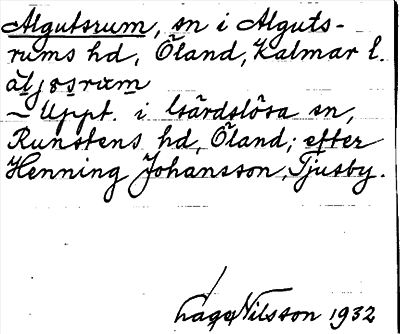 Algutsrum, sn i Alguts-
rums hd, Öland, Kalmar l.
äljosrum
~ Uppt. i Gärdslösa sn,
Runstens hd, Öland; efter
Henning Johansson, Tjusby.
Lage Nilsson 1932